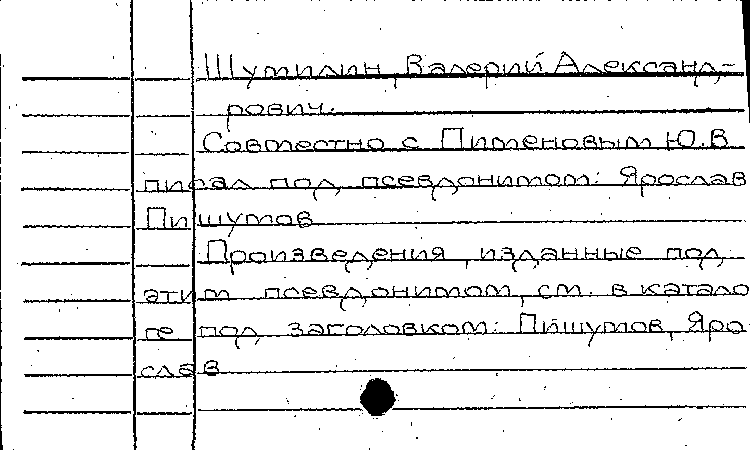 Шутилин, Валерий Александ-
рович.
Совместно с Пименовым Ю.В
писал под псевдонимом: Ярослав
Пишутов
Произведения, изданные под
этим псевдонимом, см. в катало
ге под заголовком: Пишутов, Яро
слав